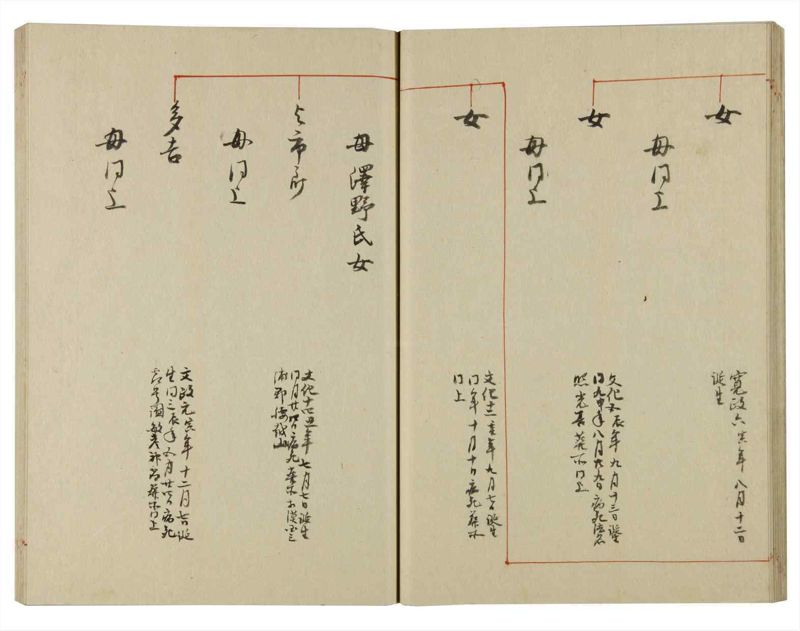 女
母同上
寛政六寅年八月十二日
誕生
女
母同上
文化五辰年九月十三日誕生
同九申年八月六日病死法名
照光
葬所同上
女
文化十二亥年九月七日誕生
同年十月十日病死葬所
同上
母澤野氏女
与市郎
母同上
文化十四丑年七月七日誕生
同月廿四日病死葬所
多吉
母同上
文政元寅年十二月七日誕
生同三辰年五月廿四日病死
葬所同上